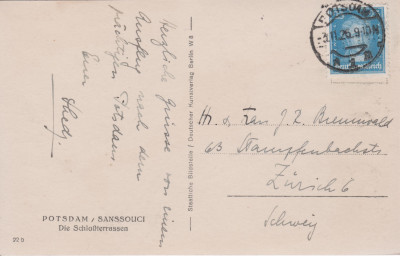 Herzliche Grüsse von einem
Ausflug nach dem
mächtigen Potsdam
Euer
POTSDAM / SANSSOUCI
Die Schloßterrassen
22 b
Staatliche Bildstelle / Deutscher Kunstverlag Berlin W 8
POTSDAM
Hr. & Frau J. Z. Brunnwald
63 Stampfenbachstr.
Zürich 6
Schweiz